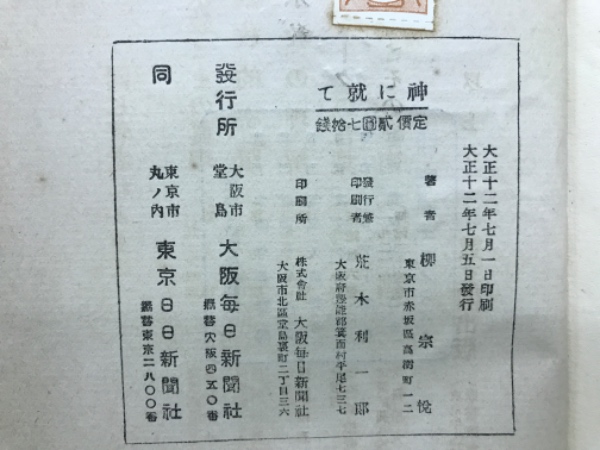 大正十二年七月一日印刷
大正十二年七月五日發行
神に就て
定價貳圓七拾錢
著者 柳宗悅
東京市赤坂區高樹町一二
發行兼印刷者 荒木利一郎
大阪府豐能郡箕面村平尾七三七
印刷所 株式會社 大阪每日新聞社
大阪市北區堂島裏町二丁目三六
發行所 大阪市堂島 大阪每日新聞社
振替大阪四五〇番
同 東京市丸ノ內 東京日日新聞社
振替東京二八〇〇番